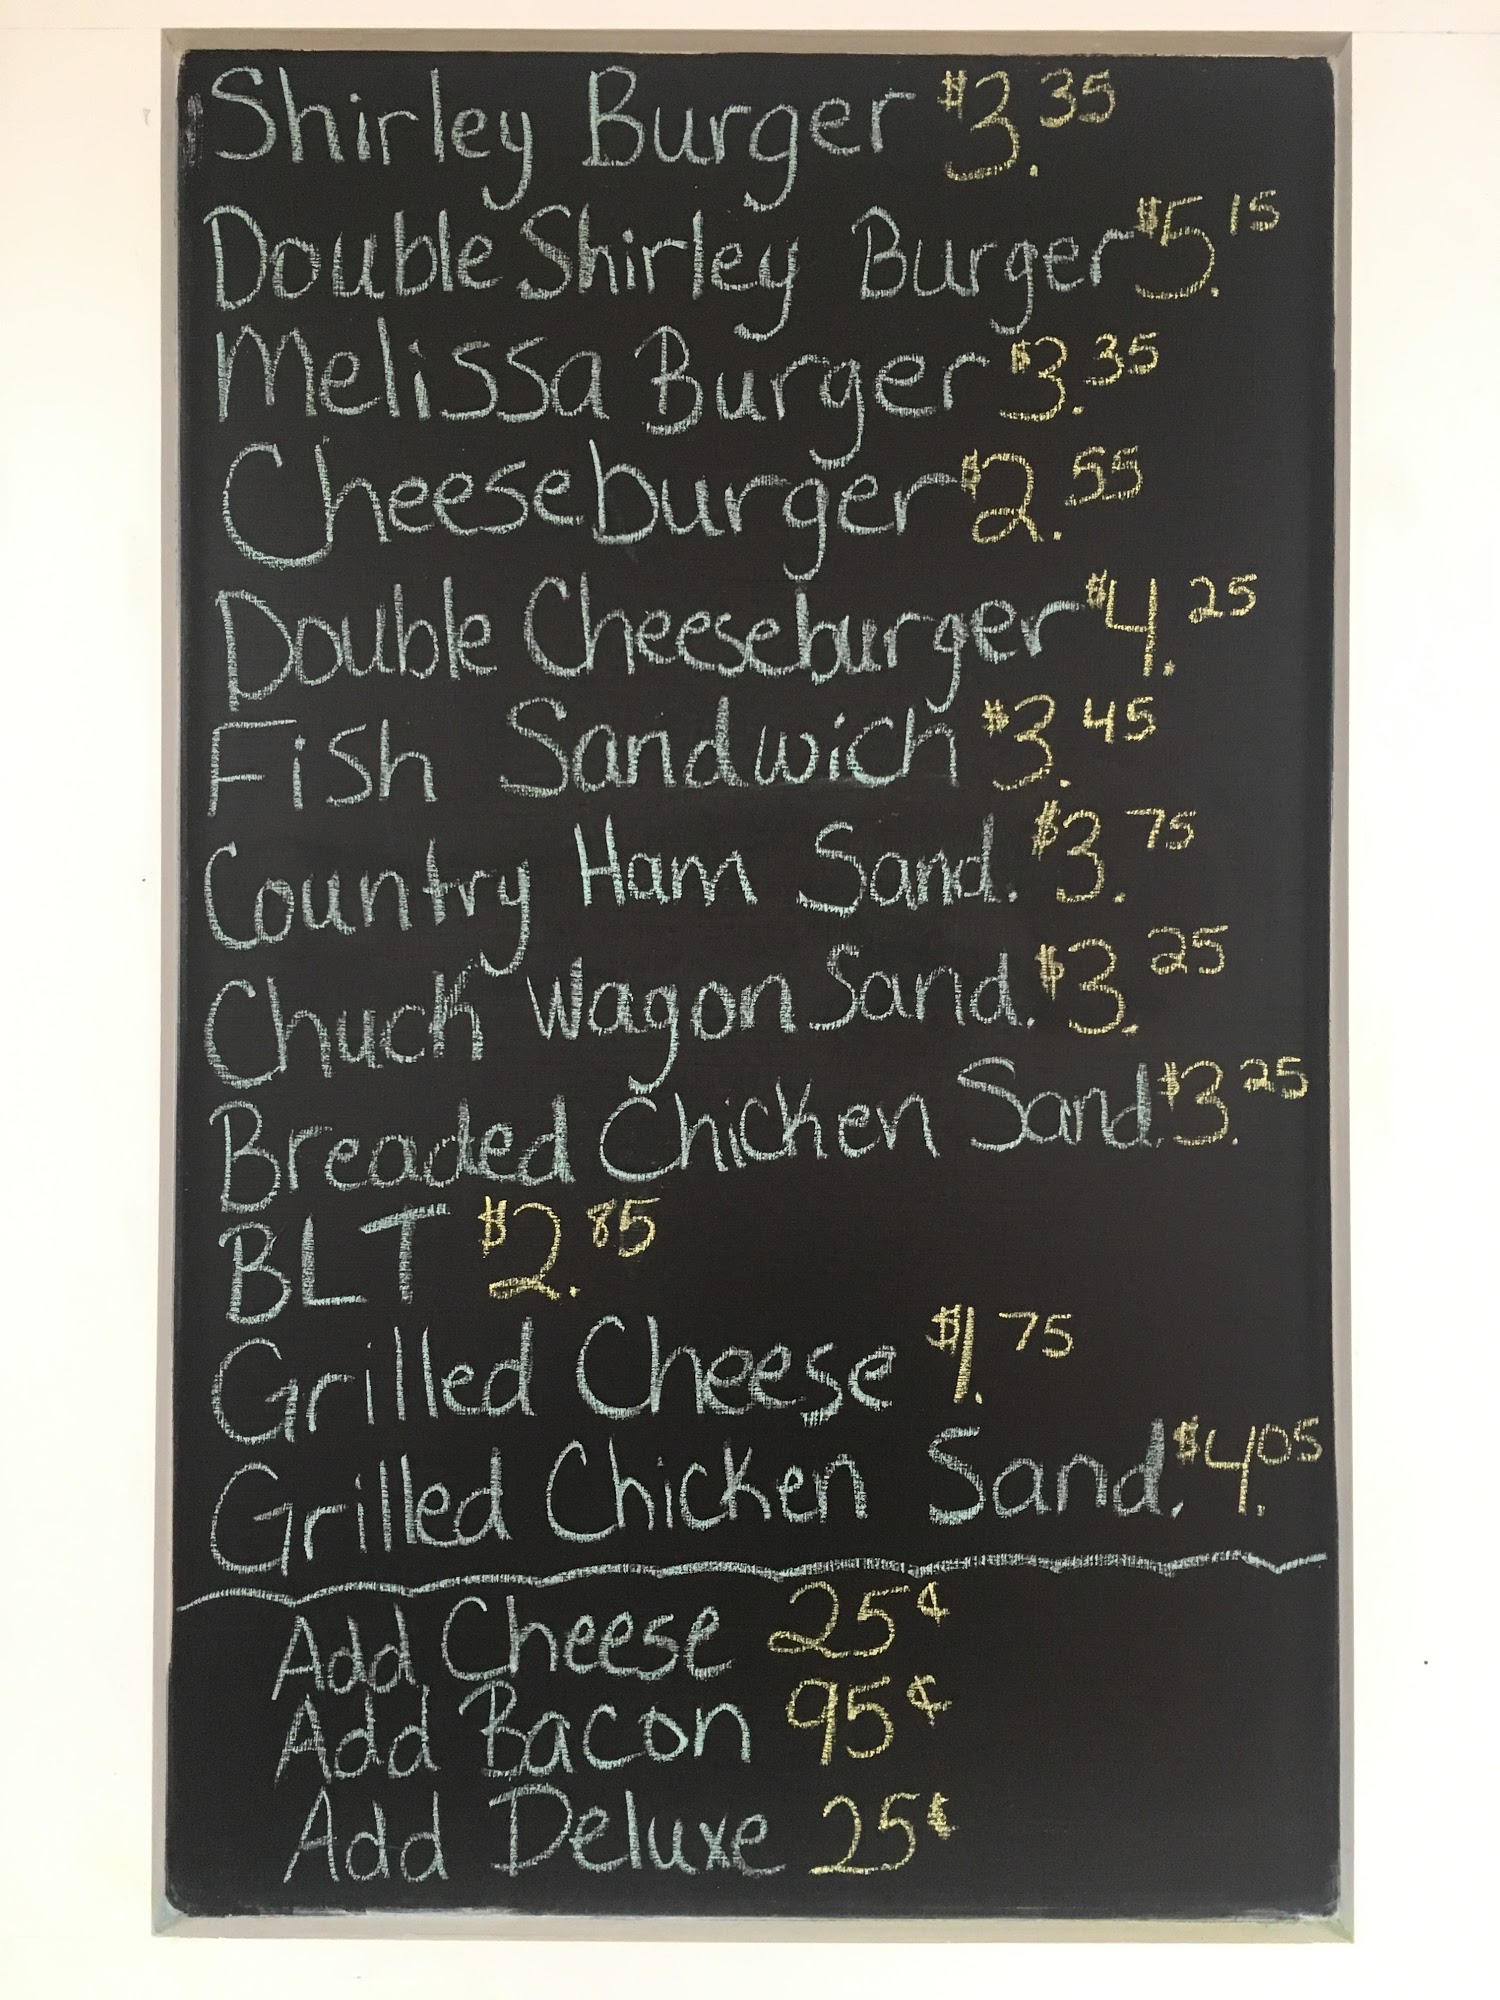 Shirley Burger $3.35
Double Shirley Burger $5.15
Melissa Burger $3.35
Cheeseburger $2.55
Double Cheeseburger $4.25
Fish Sandwich $3.45
Country Ham Sand. $3.75
Chuck Wagon Sand. $3.25
Breaded Chicken Sand. $3.25
BLT $2.85
Grilled Cheese $1.75
Grilled Chicken Sand. $4.05
Add Cheese 25¢
Add Bacon 95¢
Add Deluxe 25¢